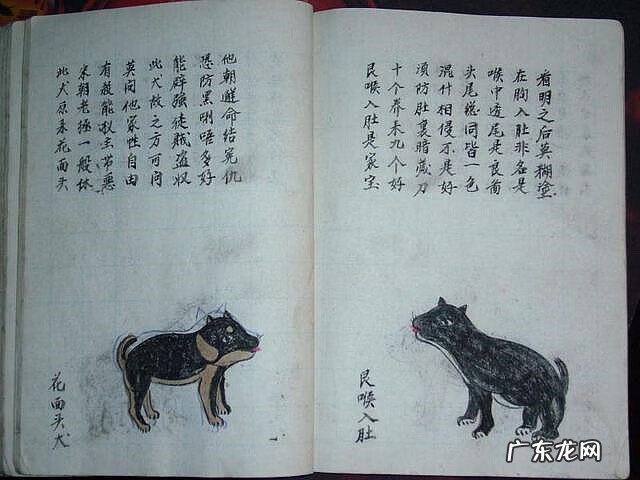 此犬原来花面头
宋朝老拯一般休
有救能权主苦恶
莫问他家性自由
此犬放之方可问
能辟强徒贼盗収
恐防黑唎唔多好
他朝命结冤仇
花面头犬
艮喉入肚是家宝
十个养来九个好
須防肚裏暗藏刀
混什相侵不是好
头尾總同皆一色
喉中透尾是良苗
在胸入肚非名是
看明之后莫糊塗
艮喉入肚
广东龙网